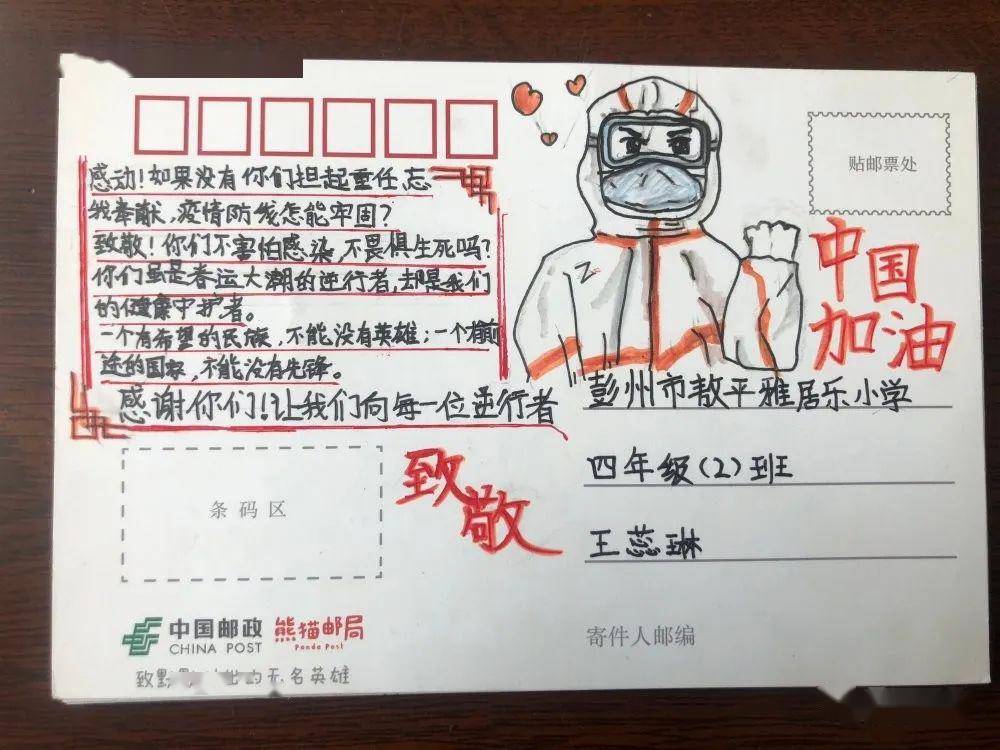 感动！如果没有你们担起重任忘
我奉献，疫情防线怎能牢固？
致敬！你们不害怕感染，不畏惧生死吗？
你们虽是春运大潮的逆行者，却是我们
的健康守护者。
一个有希望的民族，不能没有英雄；一个有前
途的国家，不能没有先锋。
感谢你们！让我们向每一位逆行者
致敬
贴邮票处
中国
加油
彭州市敖平雅居乐小学
四年级（2）班
王蕊琳
条码区
中国邮政
CHINA POST
熊猫邮局
Panda Post
致 的无名英雄
寄件人邮编